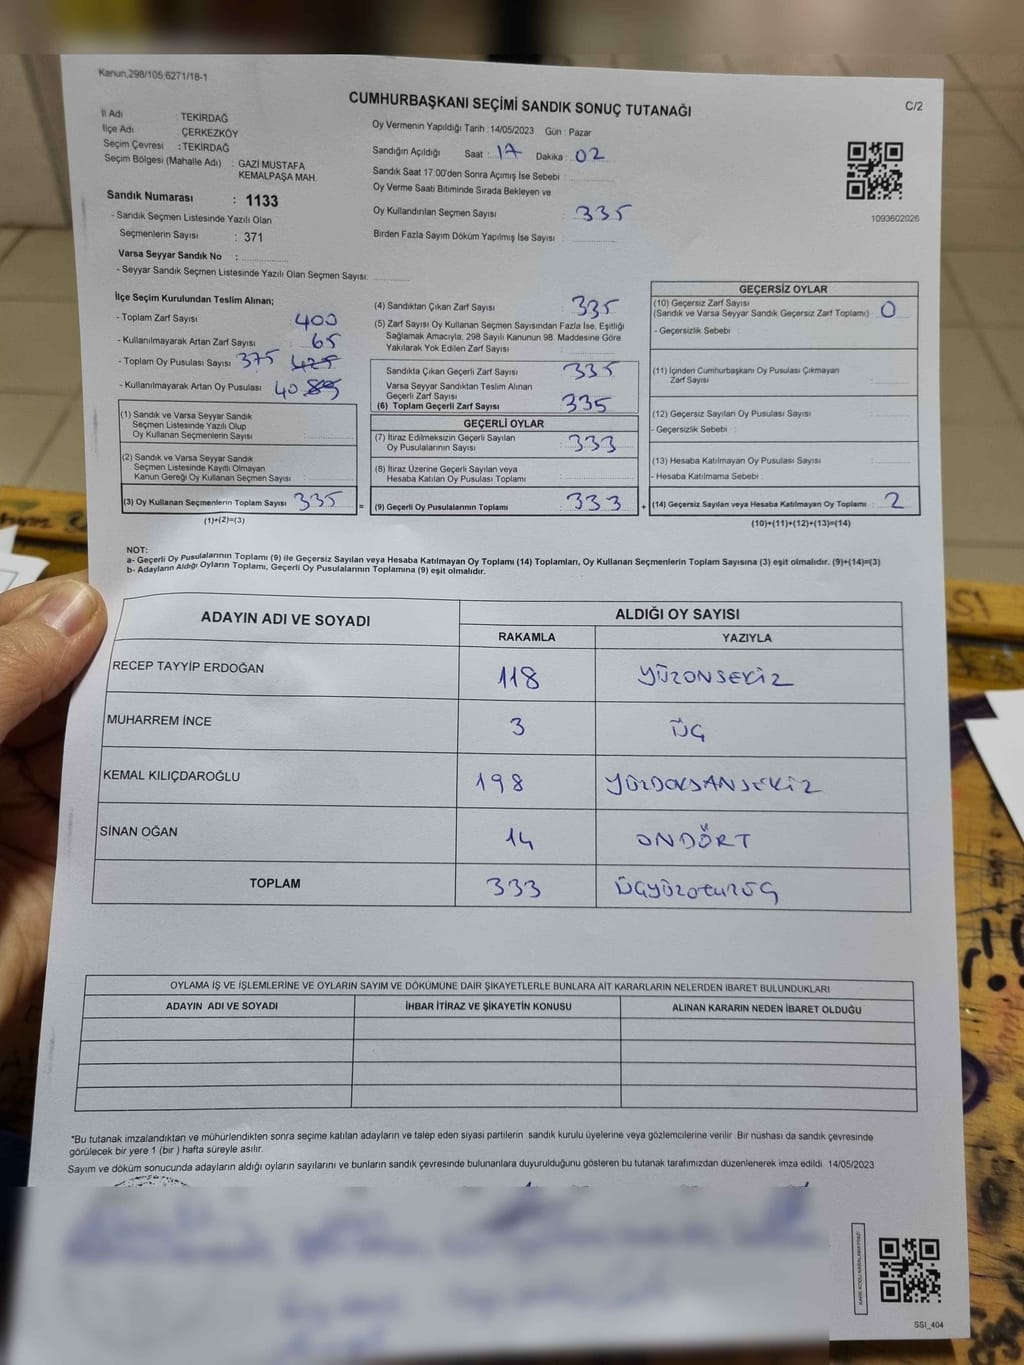 Kanun,298/105;6271/18-1
CUMHURBAŞKANI SEÇİMİ SANDIK SONUÇ TUTANAĞI
C/2
İl Adı : TEKİRDAĞ
İlçe Adı : ÇERKEZKÖY
Seçim Çevresi : TEKİRDAĞ
Seçim Bölgesi (Mahalle Adı) : GAZI MUSTAFA
KEMALPAŞA MAH.
Sandık Numarası : 1133
- Sandık Seçmen Listesinde Yazılı Olan
Seçmenlerin Sayısı : 371
Varsa Seyyar Sandık No :
- Seyyar Sandık Seçmen Listesinde Yazılı Olan Seçmen Sayısı:
Oy Vermenin Yapıldığı Tarih : 14/05/2023 Gün : Pazar
Sandığın Açıldığı Saat : 17 Dakika : 02
Sandık Saat 17:00'den Sonra Açımış İse Sebebi :
Oy Verme Saati Bitiminde Sırada Bekleyen ve
Oy Kullandırılan Seçmen Sayısı : 335
Birden Fazla Sayım Döküm Yapılmış İse Sayısı :
1093602026
İlçe Seçim Kurulundan Teslim Alınan;
- Toplam Zarf Sayısı : 400
- Kullanılmayarak Artan Zarf Sayısı : 65
- Toplam Oy Pusulası Sayısı : 375 425
- Kullanılmayarak Artan Oy Pusulası : 40
(1) Sandık ve Varsa Seyyar Sandık
Seçmen Listesinde Yazılı Olup
Oy Kullanan Seçmenlerin Sayısı :
(2) Sandık ve Varsa Seyyar Sandık
Seçmen Listesinde Kayıtlı Olmayan
Kanun Gereği Oy Kullanan Seçmen Sayısı :
(3) Oy Kullanan Seçmenlerin Toplam Sayısı : 335
(1)+(2)=(3)
(4) Sandıktan Çıkan Zarf Sayısı : 335
(5) Zarf Sayısı Oy Kullanan Seçmen Sayısından Fazla İse, Eşitliği
Sağlamak Amacıyla, 298 Sayılı Kanunun 98. Maddesine Göre
Yakılarak Yok Edilen Zarf Sayısı :
Sandıkta Çıkan Geçerli Zarf Sayısı : 335
Varsa Seyyar Sandıktan Teslim Alınan
Geçerli Zarf Sayısı :
(6) Toplam Geçerli Zarf Sayısı : 335
GEÇERLİ OYLAR
(7) İtiraz Edilmeksizin Geçerli Sayılan
Oy Pusulalarının Sayısı : 333
(8) İtiraz Üzerine Geçerli Sayılan veya
Hesaba Katılan Oy Pusulası Toplamı :
= (9) Geçerli Oy Pusulalarının Toplamı : 333
GEÇERSİZ OYLAR
(10) Geçersiz Zarf Sayısı
(Sandık ve Varsa Seyyar Sandık Geçersiz Zarf Toplamı) : 0
- Geçersizlik Sebebi :
(11) İçinden Cumhurbaşkanı Oy Pusulası Çıkmayan
Zarf Sayısı :
(12) Geçersiz Sayılan Oy Pusulası Sayısı :
- Geçersizlik Sebebi :
(13) Hesaba Katılmayan Oy Pusulası Sayısı :
- Hesaba Katılmama Sebebi :
+ (14) Geçersiz Sayılan veya Hesaba Katılmayan Oy Toplamı : 2
(10)+(11)+(12)+(13)=(14)
NOT:
a- Geçerli Oy Pusulalarının Toplamı (9) ile Geçersiz Sayılan veya Hesaba Katılmayan Oy Toplamı (14) Toplamları, Oy Kullanan Seçmenlerin Toplam Sayısına (3) eşit olmalıdır. (9)+(14)=(3)
b- Adayların Aldığı Oyların Toplamı, Geçerli Oy Pusulalarının Toplamına (9) eşit olmalıdır.
ADAYIN ADI VE SOYADI ALDIĞI OY SAYISI
RAKAMLA YAZIYLA
RECEP TAYYİP ERDOĞAN 118 YÜZONSEKİZ
MUHARREM İNCE 3 ÜÇ
KEMAL KILIÇDAROĞLU 198 YÜZDOKSANSEKİZ
SİNAN OĞAN 14 ONDÖRT
TOPLAM 333 ÜÇYÜZOTUZÜÇ
OYLAMA İŞ VE İŞLEMLERİNE VE OYLARIN SAYIM VE DÖKÜMÜNE DAİR ŞİKAYETLERLE BUNLARA AİT KARARLARIN NELERDEN İBARET BULUNDUKLARI
ADAYIN ADI VE SOYADI İHBAR İTİRAZ VE ŞİKAYETİN KONUSU ALINAN KARARIN NEDEN İBARET OLDUĞU
*Bu tutanak imzalandıktan ve mühürlendikten sonra seçime katılan adayların ve talep eden siyasi partilerin sandık kurulu üyelerine veya gözlemcilerine verilir .Bir nüshası da sandık çevresinde
görülecek bir yere 1 (bir ) hafta süreyle asılır.
Sayım ve döküm sonucunda adayların aldığı oyların sayılarını ve bunların sandık çevresinde bulunanlara duyurulduğunu gösteren bu tutanak tarafımızdan düzenlenerek imza edildi. 14/05/2023
SSI_404